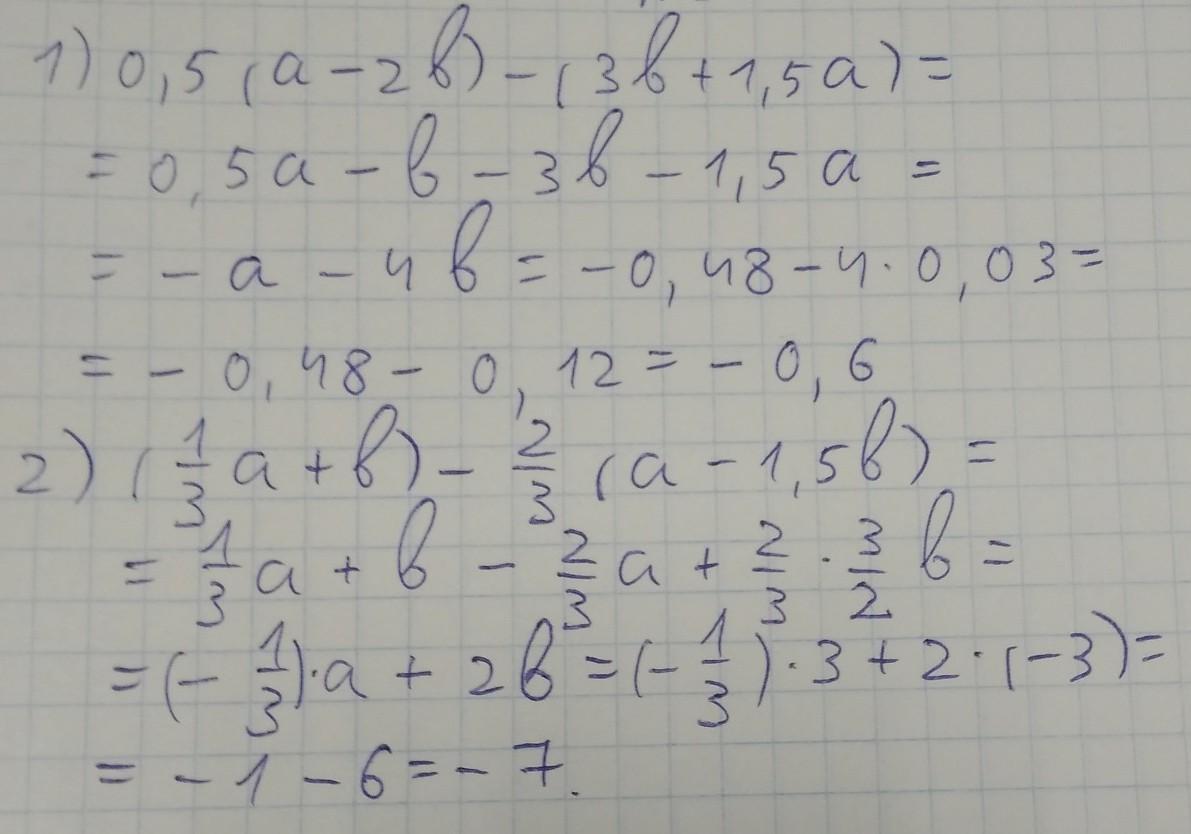 1) 0,5 (a - 2в) - (3в + 1,5a) =
= 0,5a - в - 3в - 1,5a =
= - a - 4в = - 0,48 - 4 · 0,03 =
= - 0,48 - 0,12 = - 0,6
2) (1/3 a + в) - 2/3 (a - 1,5в) =
= 1/3 a + в - 2/3 a + 2/3 · 3/2 в =
= (- 1/3) · a + 2в = (- 1/3) · 3 + 2 · (-3) =
= - 1 - 6 = - 7.